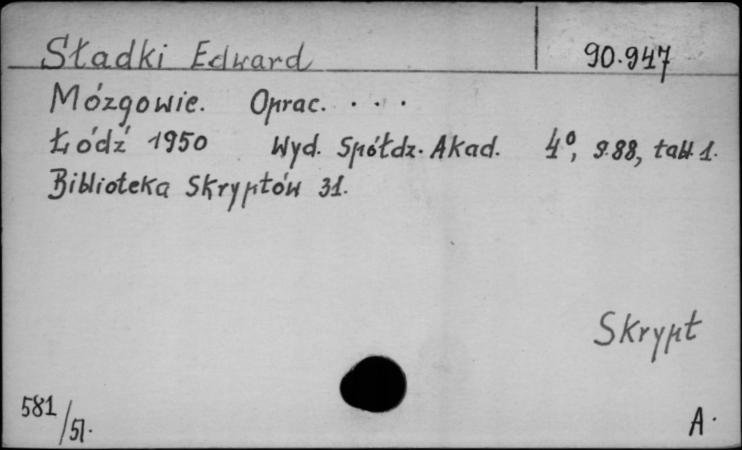 Sładki Edward 90.947
Mózgowie. Oprac. . . .
Łódź 1950 Wyd. Spółdz. Akad. 4º, s.88, tabl 1.
Biblioteka Skryptów 31.
Skrypt
581/51.
A.